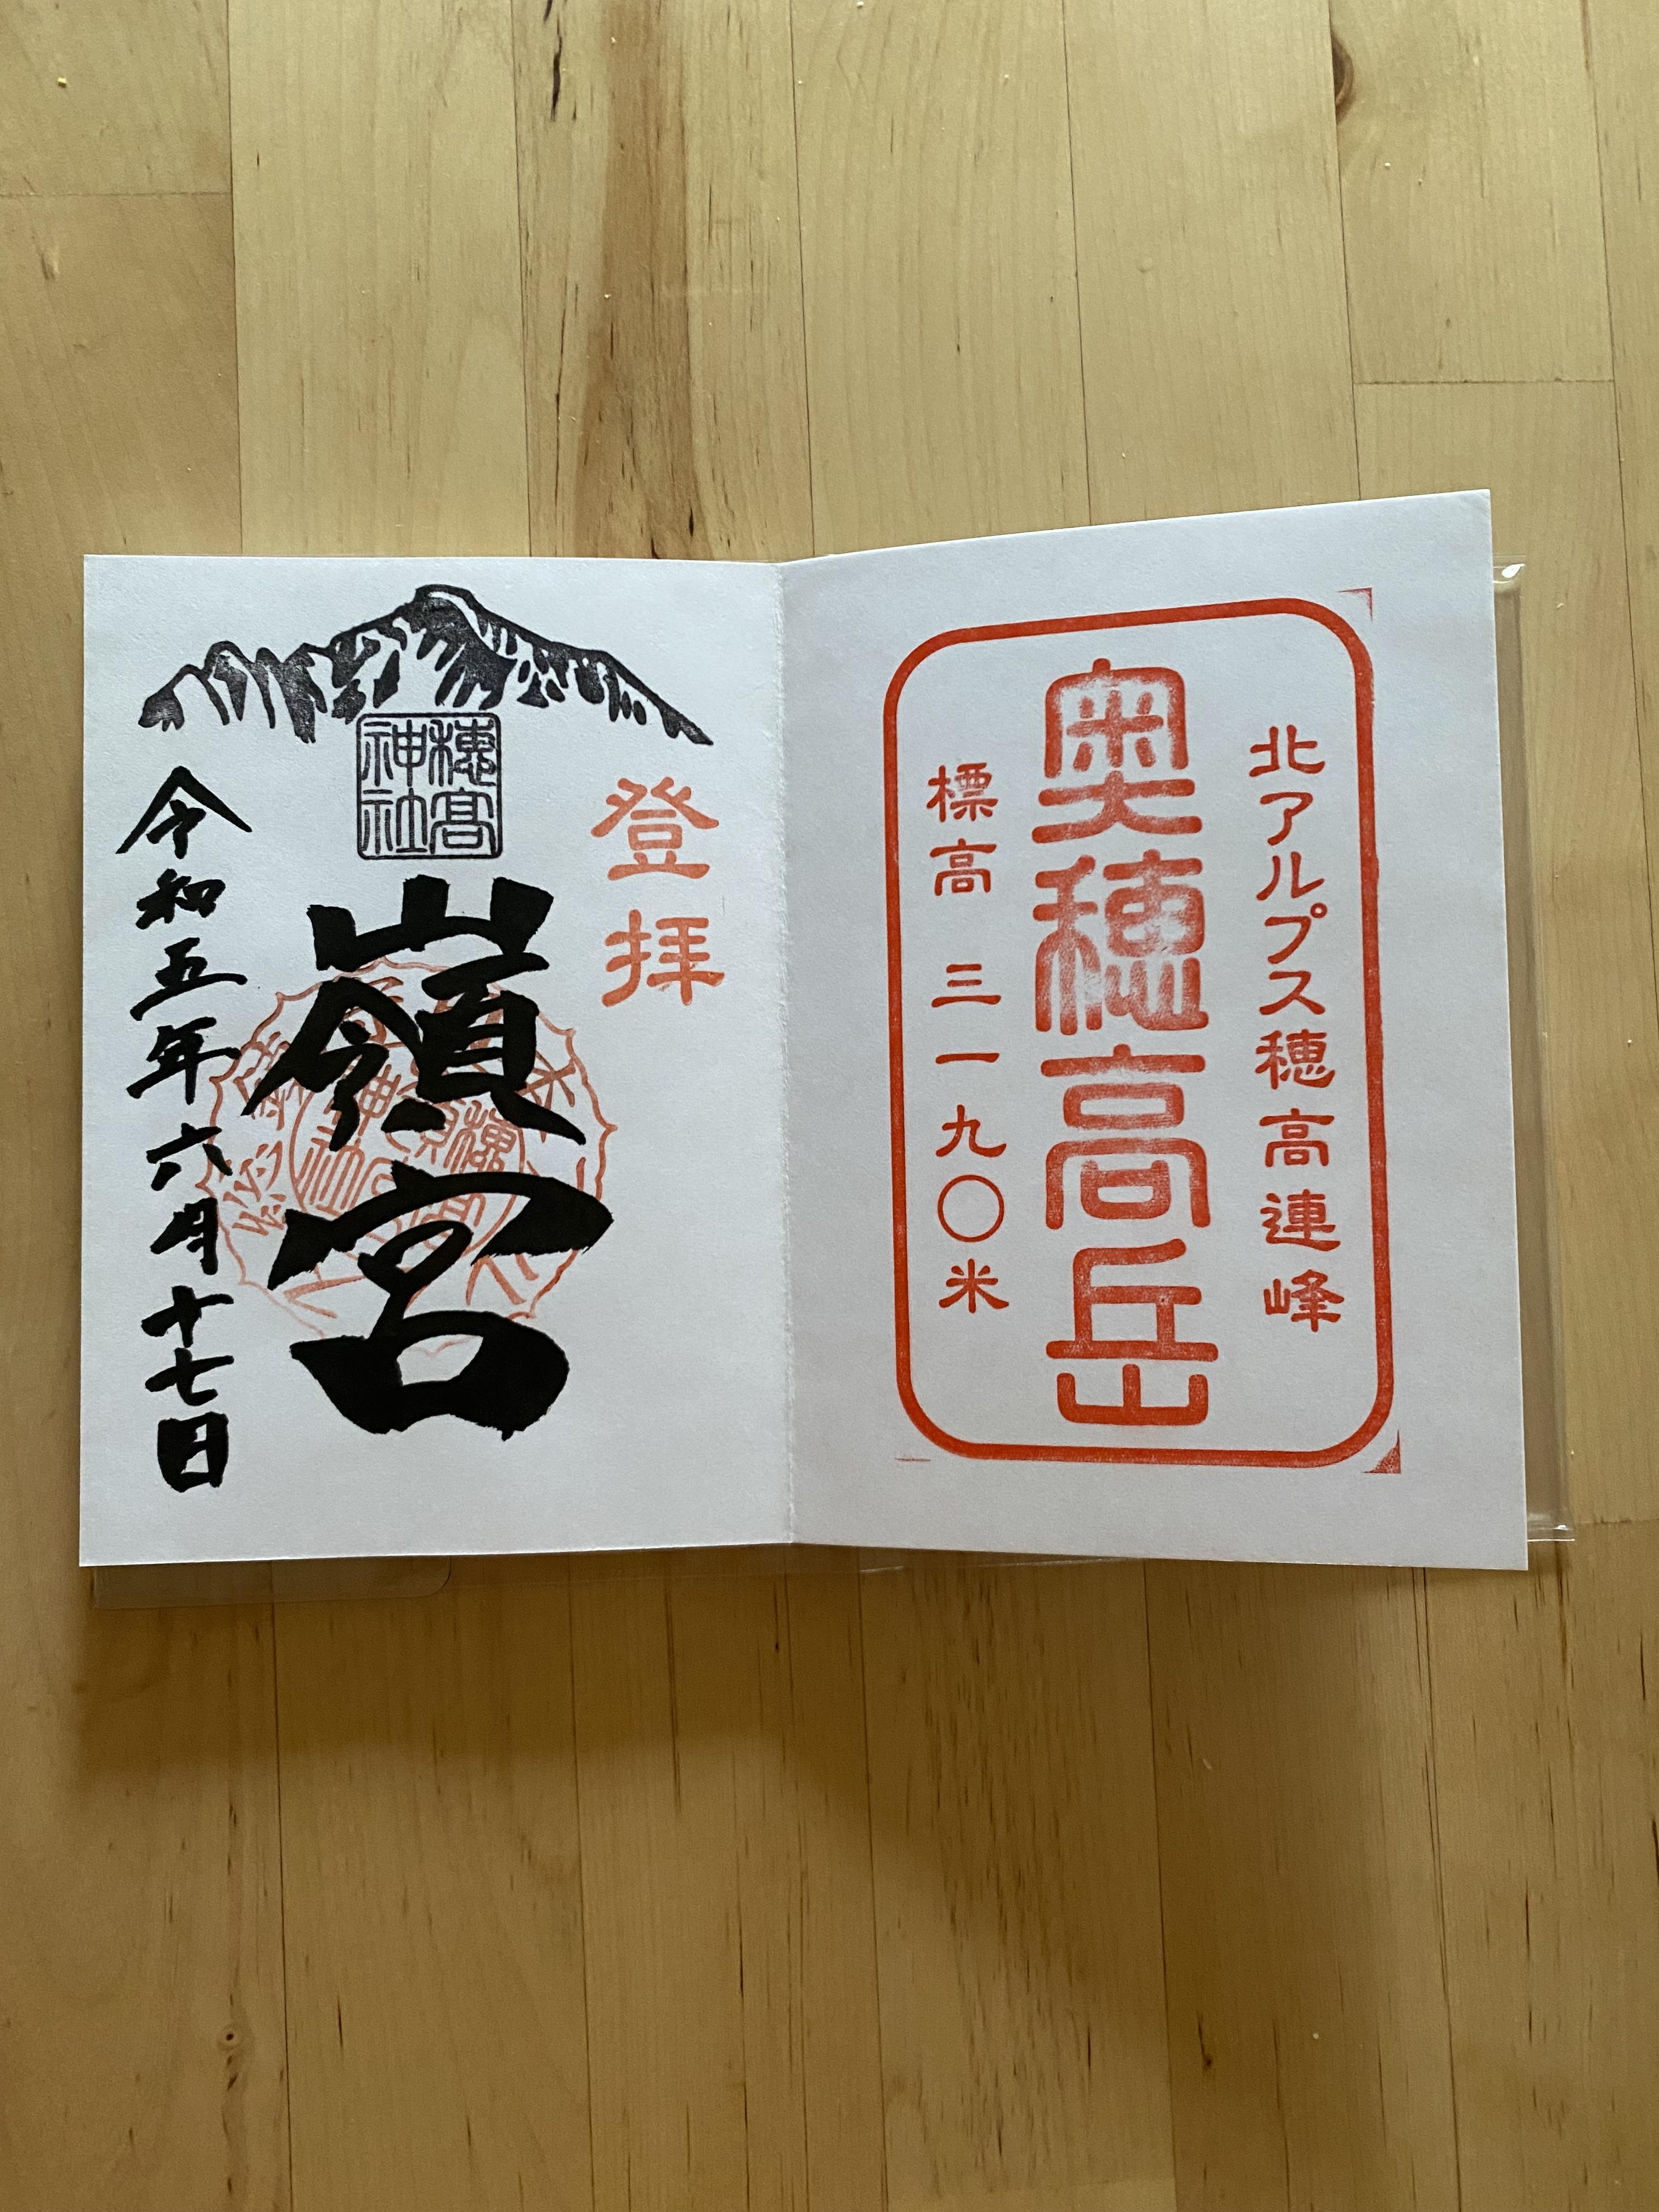 北アルプス穂高連峰
奥穂高岳
標高 三一九〇米
登拝
穂高
神社
嶺宮
令和五年六月十七日